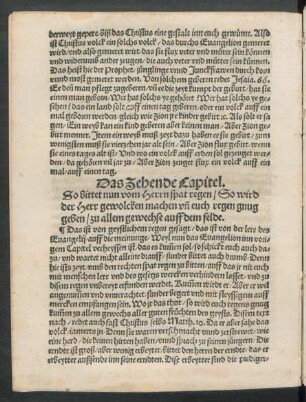 derweyt gepere. biß das Christus eine gestalt inn euch gewünne. Also
ist Christus volck ein solchs volck / das durchs Euangelion gemeret
wird. vnd also gemeret wirt das sie flux veter vnd mütter sein können
vnd widerumb ander zeugen. die auch veter vnd mütter sein können.
Das heißt hie der Prophet. jünglinge vnnd Junckfrawen durch korn
vnnd most gemeret werden. Von solchem geberen redet Jesaia. 66.
Ee den man pflegt zugeberen. vñ ee die zeyt kumpt der geburt / hat sie
einen man geborn. Wer hat solchs ye gehöret? Wer hat solchs ye ge-
sehen / das ein land solt auff einen tag geberen. oder ein volck auff ein
mal geborn werden. gleich wie Zion je kinder gebirt zc. Als solt er sa-
gen. Ein weyb kan ein kind geberen aber keinen man / Aber Zion ge-
birt mennen. Item ein weyb muß zeyt dazu haben ee sie gebirt / zum
wenigsten muß sie vierzehen jar alt sein. Aber Zion flux gebirt. wenn
sie eines tages alt ist / Vnd wo ein volck auff erden sol gezeuget wer-
den / da gehören vil jar zu. Aber Zion zeuget flux. ein volck auff ein
mal / auff einen tag.
Das Zehende Capitel.
So bittet nun vom Herrn spat regen / So wird
der Herr gewolcken machen vñ euch regen gnug
geben / zu allem gewechse auff dem felde.
¶ Das ist von geystlichem regen gesagt / das ist von der lere des
Euangelij auff die meinunge. Weyl nun das Euangelion im vori-
gem Capitel verheyssen ist das es kumen sol / so schickt euch auch dazu
zu / vnd wartet nicht alleine drauff / sunder bittet auch drumb. Denn
hie ists zeyt. vnd den rechten spat regen zu bitten / auff das jr nit euch
mit menschen lere vnd des gesetzs wercken verhindern lasset. vnd zu
disem regen vnbreyt erfunden werdet.
angenumen vnd
men auch entpfangen sein. Wo jr das thut / so wird auch regens gnug
kumen zu allem gewechse aller guten früchten des geysts. Disem text
nach / redet auch fast Christus selbs Matth. 9. da er aber sahe das
volck iamerts jn Denn sie waren verschmacht vnnd zerstrewet. wie
eine herd / die keinen hirten haben / vnnd sprach zu seinen jüngern. Die
erndte ist groß / aber wenig erbeyter. bittet den herren der erndte / das er
erbeyter aussende inn seine erndten. Dise erbeyter sind die prediger.